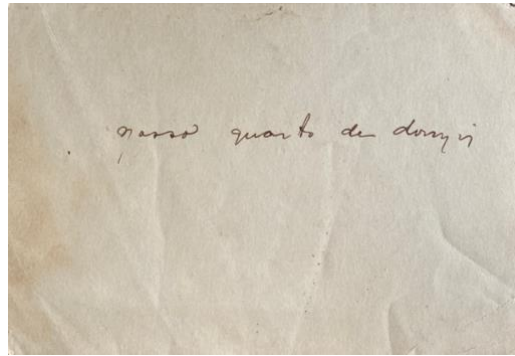 nosso quarto de dormir